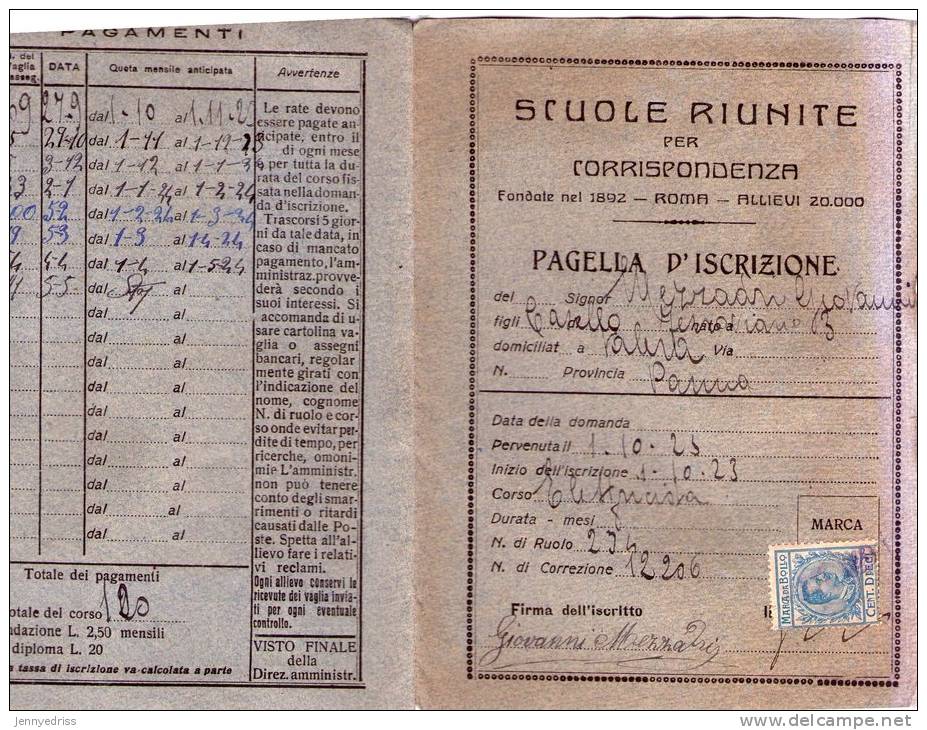 PAGAMENTI
DATA
Quota mensile anticipata
Avvertenze
27-9 dal 1-10 al 1.11.23
29-10 dal 1-11 al 1-12-23
3-12 dal 1-12 al 1-1-
2-1 dal 1-1-24 al 1-2-24
dal 1-2-24 al 1-3-24
dal 1-3 al 1-4-24
4-4 dal 1-4 al 1-5-24
5-5 dal al
dal al
dal al
dal al
dal al
dal al
dal al
dal al
dal al
dal al
dal al
Le rate devono
essere pagate an-
ticipate, entro il
di ogni mese
e per tutta la du-
rata del corso fis-
sata nella doman-
da d'iscrizione.
Trascorsi 5 gior-
ni da tale data, in
caso di mancato
pagamento, l'am-
ministraz. provve-
derà secondo i
suoi interessi. Si
accomanda di u-
sare cartolina va-
glia o assegni
bancari, regolar-
mente girati con
l'indicazione del
nome, cognome
N. di ruolo e cor-
so onde evitar per-
dite di tempo, per
ricerche, omoni-
mie L'amministr.
non può tenere
conto degli smar-
rimenti o ritardi
causati dalle Po-
ste. Spetta all'al-
lievo fare i relati-
vi reclami.
Ogni allievo conservi le
ricevute dei vaglia invia-
ti per ogni eventuale
controllo.
VISTO FINALE
della
Direz. amministr.
Totale dei pagamenti
otale del corso 120
ndazione L. 2,50 mensili
diploma L. 20
a tassa di iscrizione va calcolata a parte
SCUOLE RIUNITE
PER
CORRISPONDENZA
Fondate nel 1892 — ROMA — ALLIEVI 20.000
PAGELLA D'ISCRIZIONE
del Signor Mezzadri Giovanni
figli nato a
domiciliat a Via
N. Provincia Parma
Data della domanda
Pervenuta il 1-10-23
Inizio dell'iscrizione 1-10-23
Corso
Durata - mesi
N. di Ruolo 234
N. di Correzione 12206
MARCA
MARCA DA BOLLO
CENT. DIECI
Firma dell'iscritto
li
Giovanni Mezzadri
jennyedriss
http://www.delcampe.net